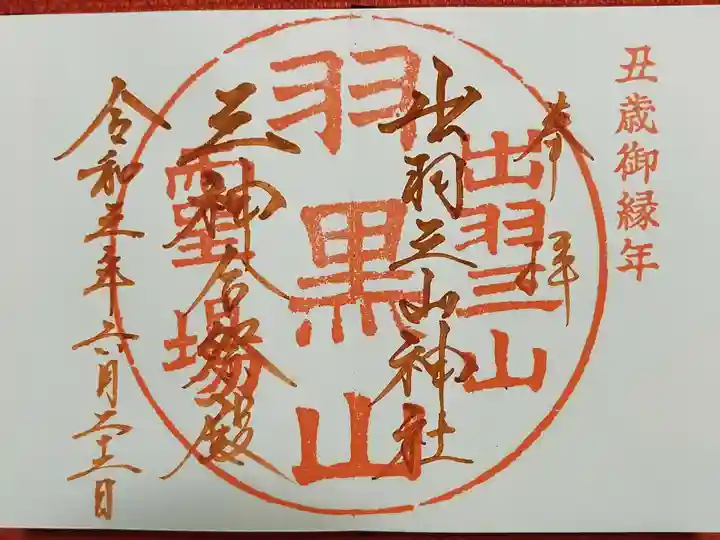 丑歳御縁年
奉拝
出羽三山神社
三神合祭殿
令和三年六月二十二日
出羽三山
羽黒山
霊場